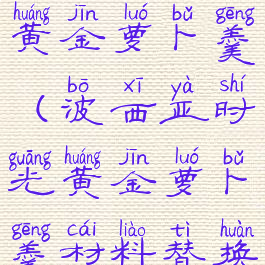 huáng jīn luó bǔ gēng
黄金萝卜羹
bō xī yà shí
(波西亚时
guāng huáng jīn luó bǔ
光黄金萝卜
gēng cái liào tì huàn
羹材料替换